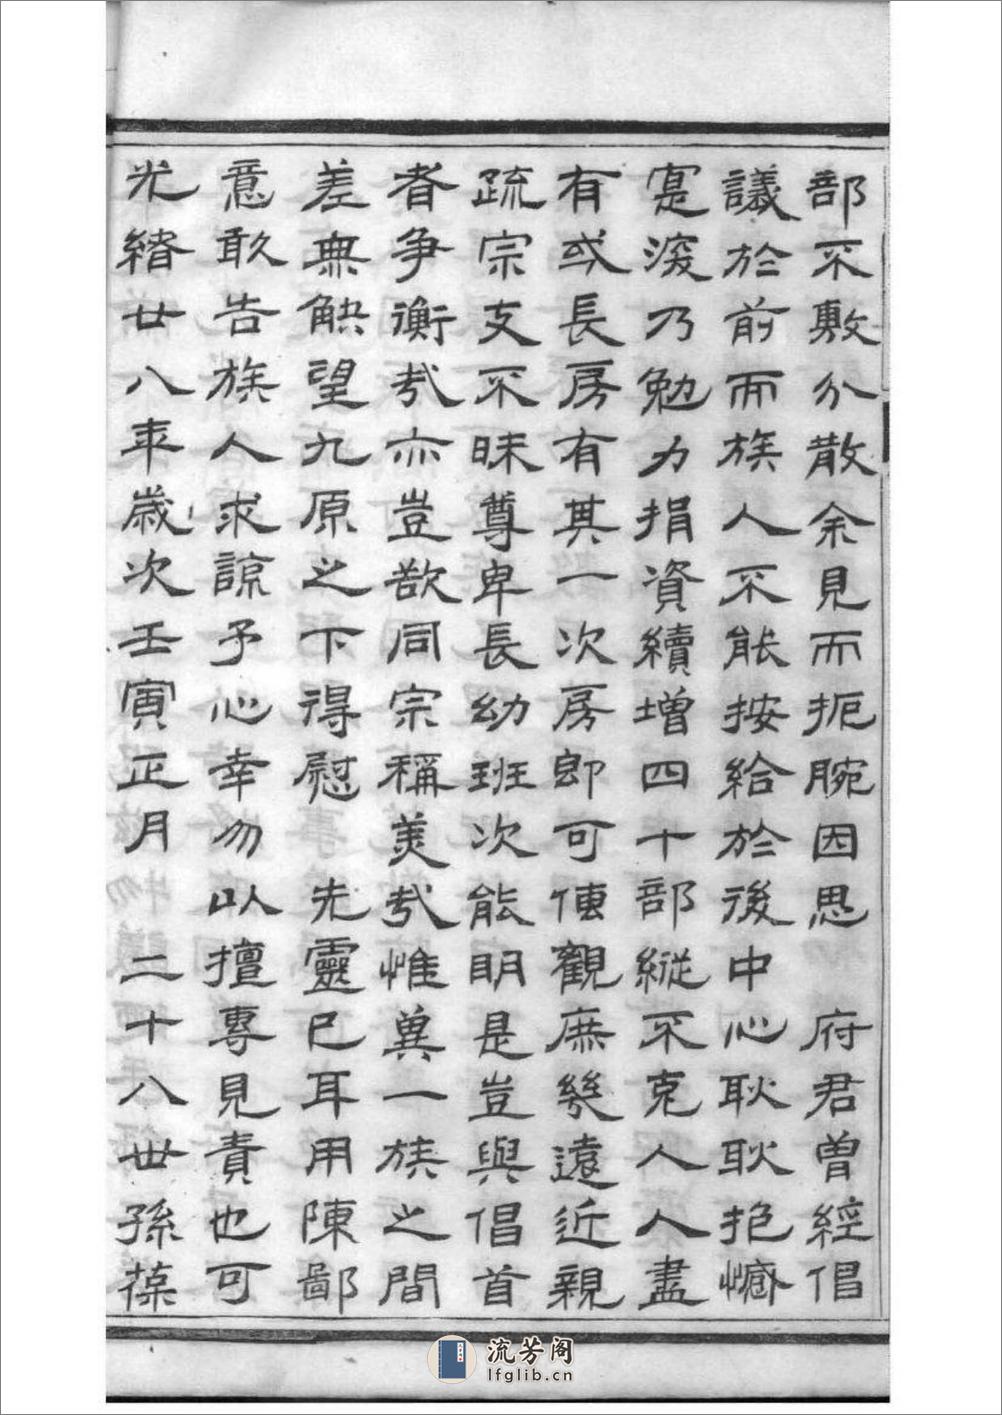 部不敷分散余見而扼腕因思　府君曾經倡
議於前而族人不能按給於後中心耿耿抱憾
寔深乃勉力捐資續增四十部縱不克人人盡
有或長房有其一次房郎可傳觀庶幾遠近親
疏宗支不昧尊卑長幼班次能明是豈與倡首
者爭衡哉亦豈敢同宗稱美哉惟冀一族之間
差無觖望九原之下得慰　先靈已耳用陳鄙
意敢告族人求諒予心幸勿以擅專見責也可
光緒廿八年歲次壬寅正月　二十八世孫葆
流芳阁
lfglib.cn